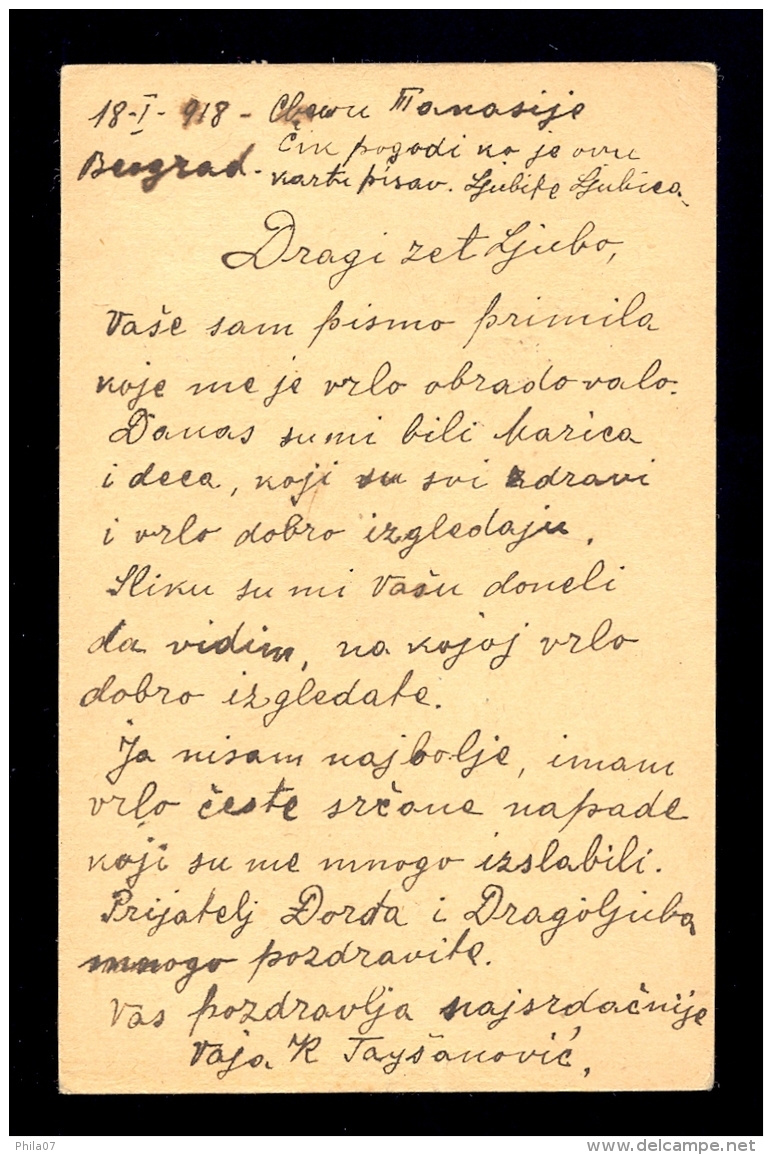 18-I-918-
Beograd.
Tanasije
Čik pogodi ko je ovu
kartu pisao. Ljubite Ljubica
Dragi zet Ljubo,
Vaše sam pismo primila
koje me je vrlo obradovalo.
Danas su mi bili Marica
i deca, koji su svi zdravi
i vrlo dobro izgledaju.
Sliku su mi Vašu doneli
da vidim, na kojoj vrlo
dobro izgledate.
Ja nisam najbolje, imam
vrlo česte srčane napade
koji su me mnogo izslabili.
Prijatelj Đorđa i Dragoljuba
mnogo pozdravite.
Vas pozdravlja najsrdačnije
Vaja K
Phila07
www.delcampe.net